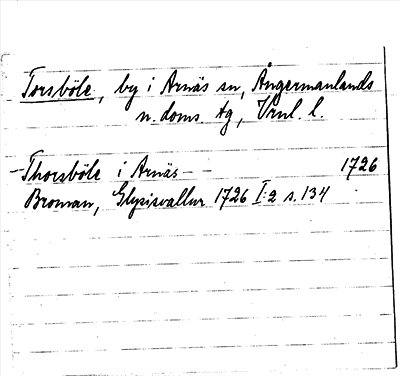 Torsböle, by i Arnäs sn, Ångermanlands
n. doms. tg, Vrnl. l.
Thorsböle i Arnäs - - 1726
Broman, Glysisvallur 1726 I:2 s. 134